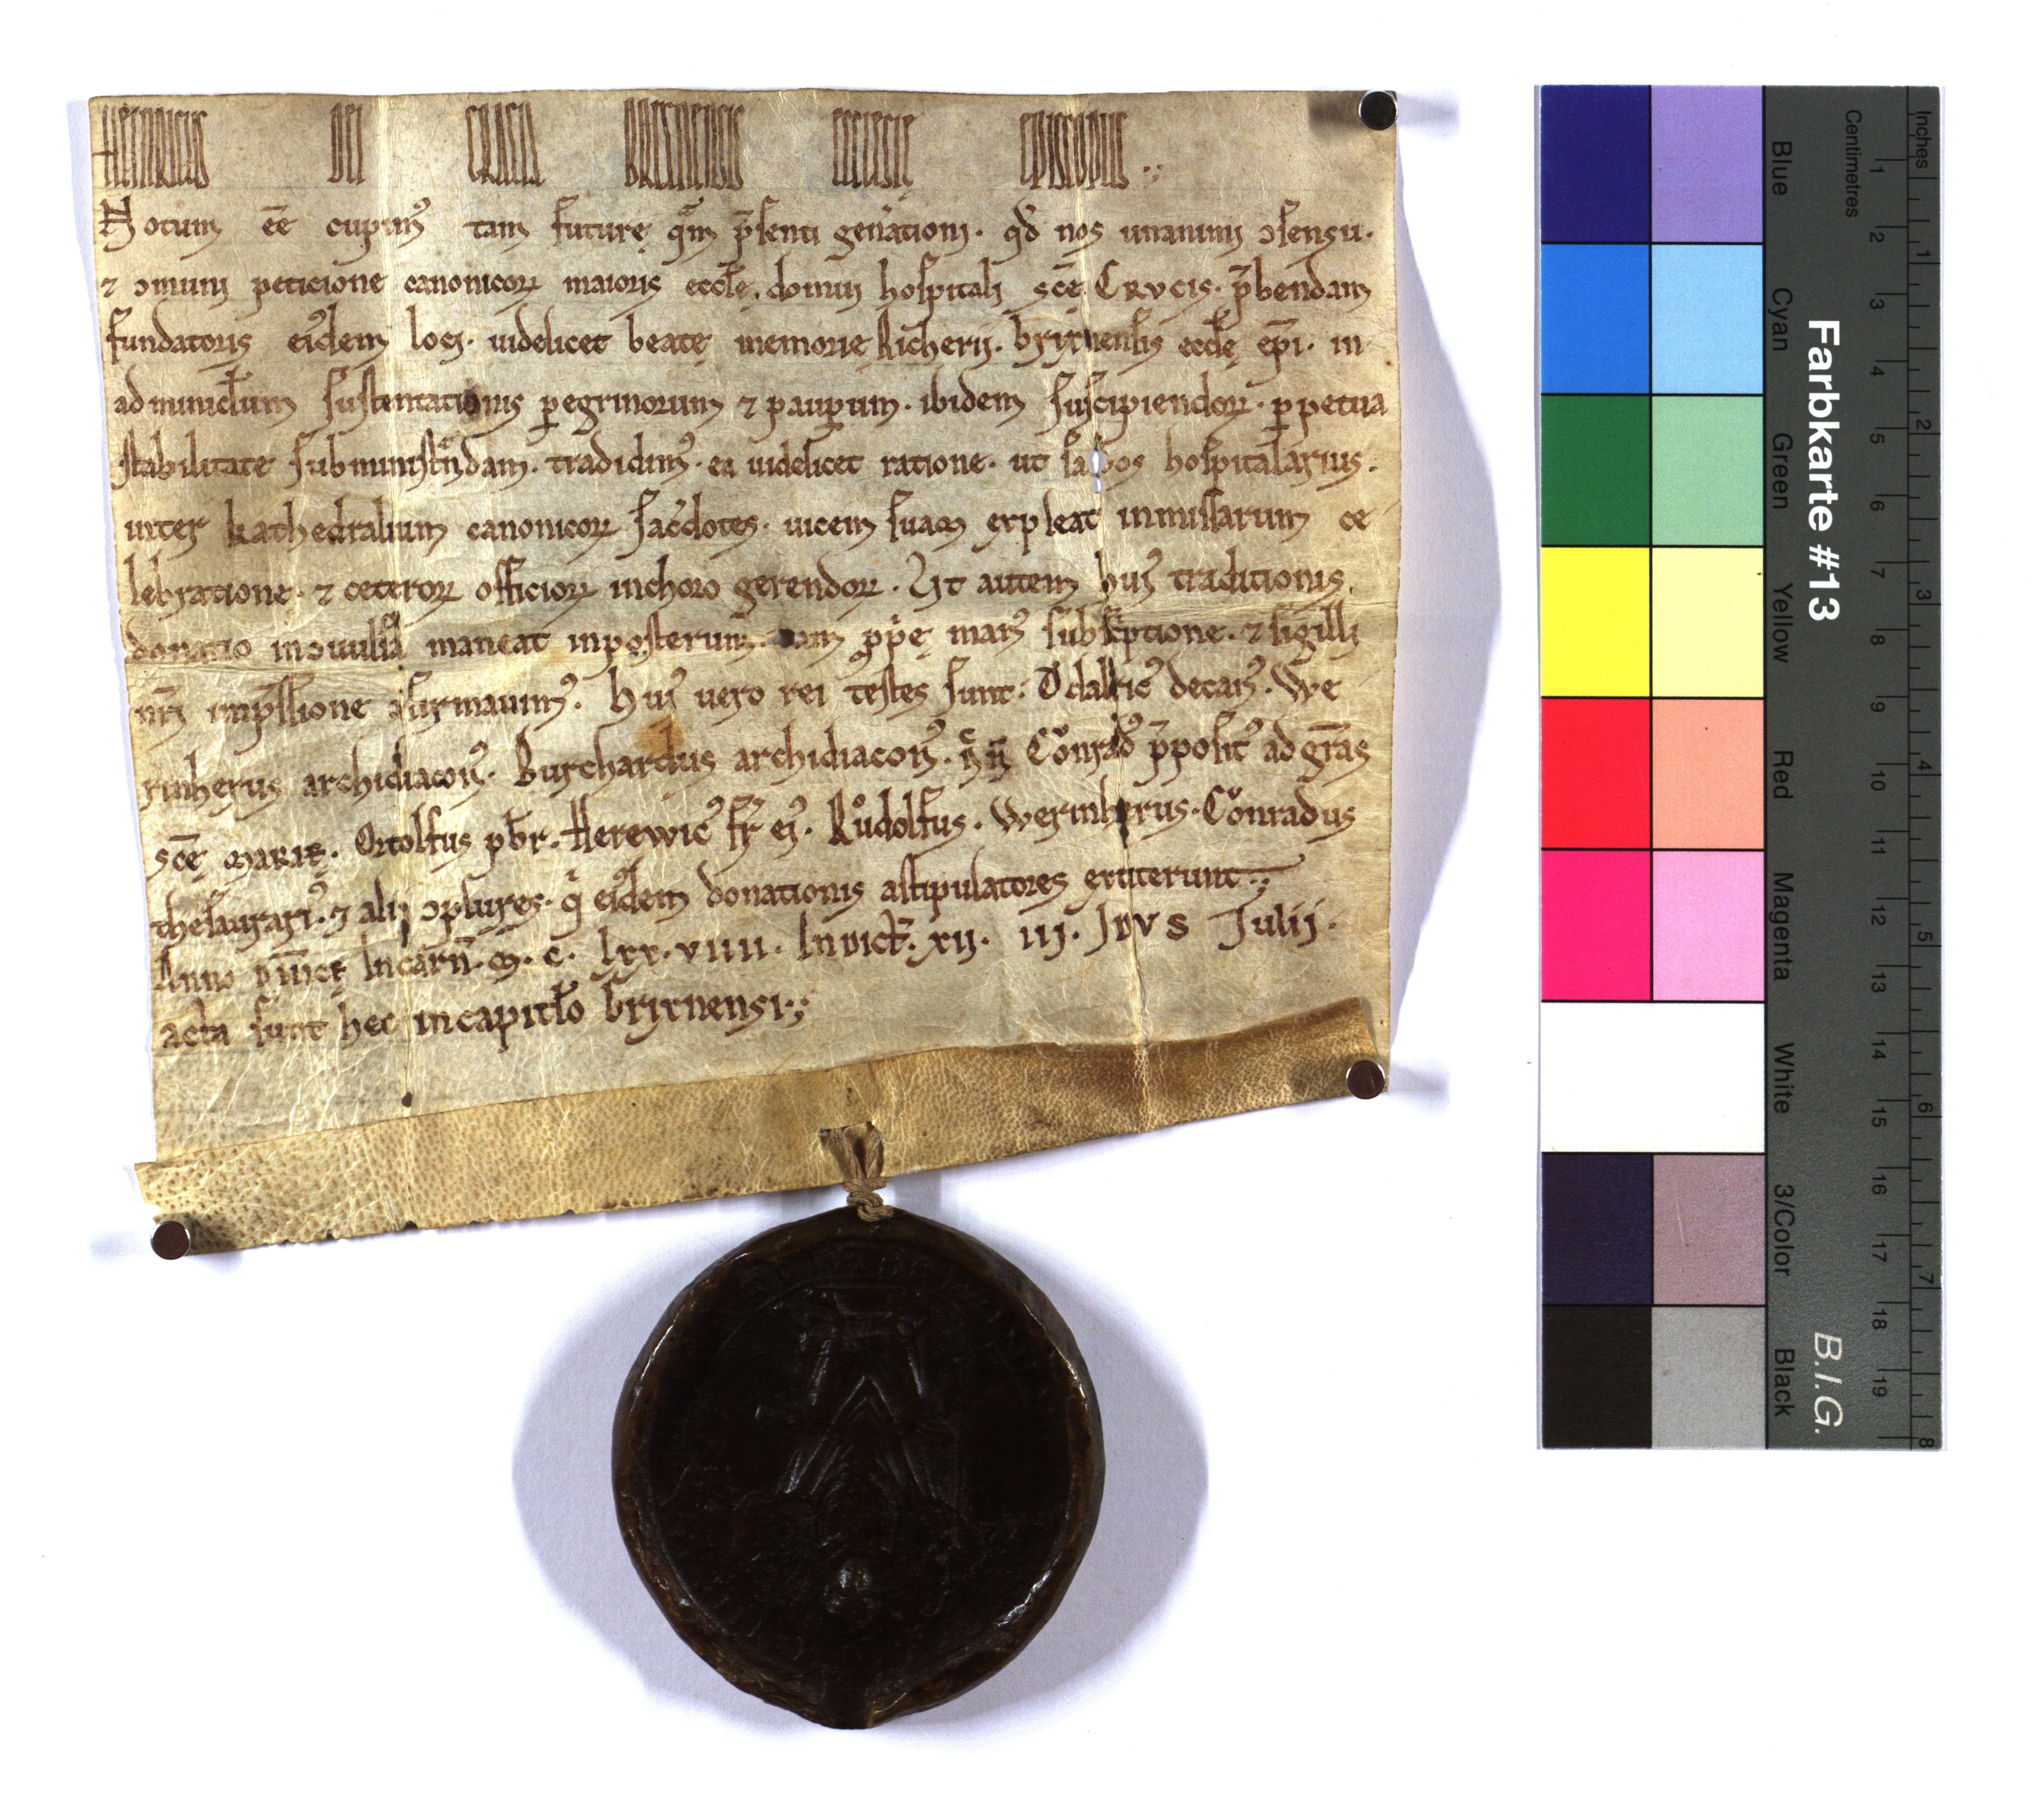 HEINRICUS DEI GRACIA BRIXINENSIS ECCLESIE EPISCOPUS
Notum eē cupimꝰ tam futurę quͣm p̄senti gen̄ationi · qd̄ nos unanimi ɔsensu ·
⁊ ɔmuni peticione canonicoꝝ maioris eccłę · domui hospitali scē CRVCIS · p̄bendam
fundatoris eiꝰdem loci · uidelicet beatę memorie Richerij · brixinensis eccłę ep̄i · in
adminicłum sustentationis ꝑegrinorum ⁊ pauꝑum · ibidem suscipiendoꝝ · ꝑpetua
stabilitate subministͣndam · tradidimꝰ · ea uidelicet ratione · ut hospitalarius ·
inter kathedralium canonicoꝝ sac̄dotes · uicem suam expleat inmissarum ce
lebratione · ⁊ ceteroꝝ officioꝝ inchoro gerendoꝝ · Ut autem huiꝰ traditionis
donatio inɔuulsa maneat inposterum · eam ꝓpͥę manꝰ subsͥptione · ⁊ sigilli
nr̄i imp̄ssione ɔfirmauimꝰ · Huiꝰ uero rei testes sunt · Odalricꝰ decanꝰ · We
rinherus archidiaconꝰ · Burchardus archidiaconꝰ · Cǒnradꝰ p̄positꝰ ad gr̄as
scē MARIĘ · Ortolfus pb̄r · Herewicꝰ fr̄ eiꝰ · Růdolfus · Werinherus · Cǒnradus
thesaurariꝰ · ⁊ alij ɔplures · qͥ eiꝰdem donationis astipulatores extiterunt ·
Anno dn̄icę Incarn̄ · M · C · LXX · VIIII · Indict̄ · XII · III · IDVS Julij ·
acta sunt hec incapitło brixinensi ·
Farbkarte #13
B.I.G.
Centimetres
Inches
Blue
Cyan
Green
Yellow
Red
Magenta
White
3/Color
Black
1 2 3 4 5 6 7 8 9 10 11 12 13 14 15 16 17 18 19
1 2 3 4 5 6 7 8